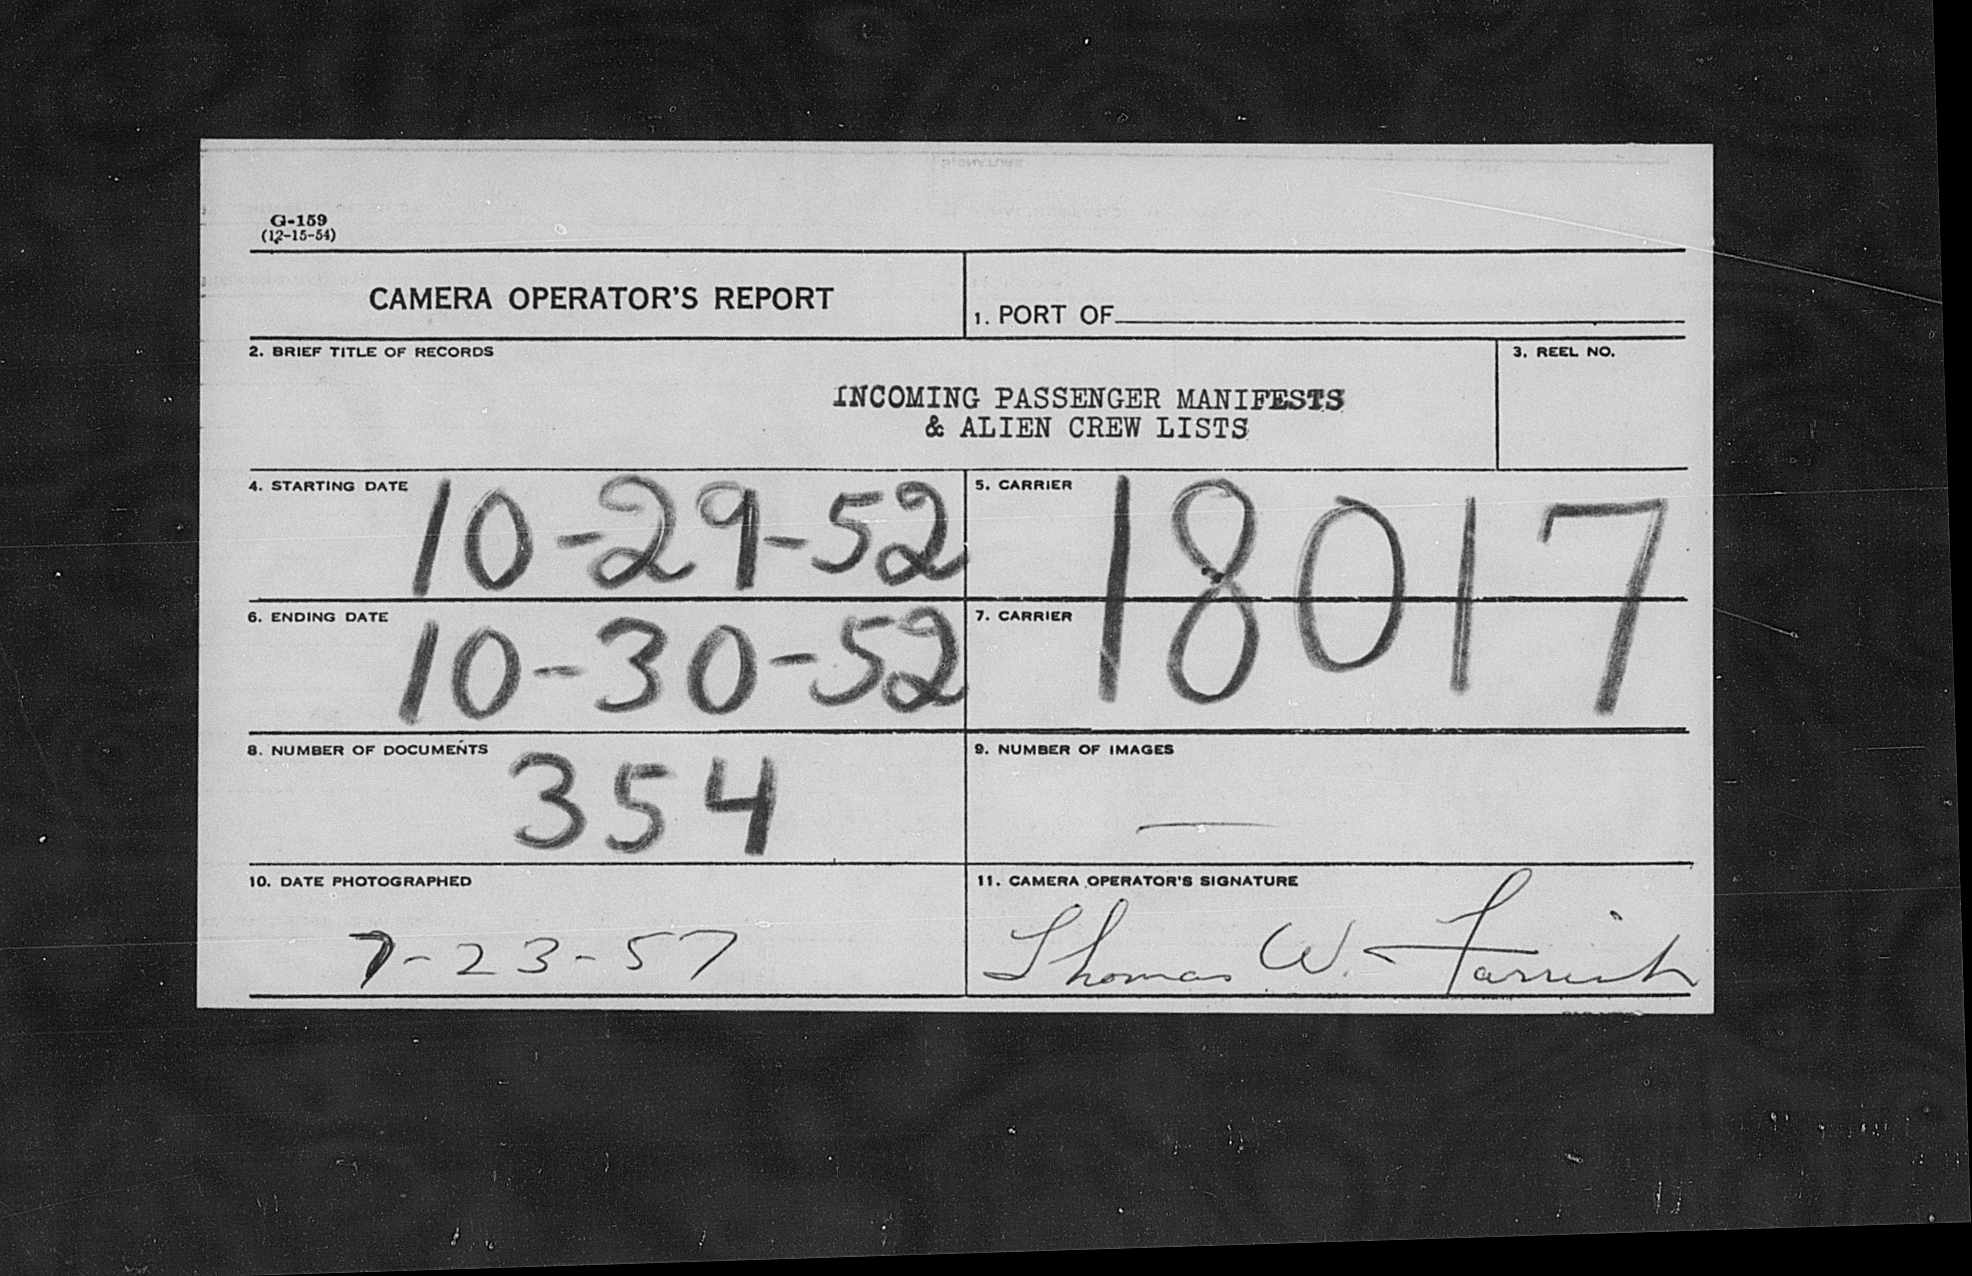 G-159
(12-15-54)
CAMERA OPERATOR'S REPORT
1. PORT OF
2. BRIEF TITLE OF RECORDS
INCOMING PASSENGER MANIFESTS
& ALIEN CREW LISTS
3. REEL NO.
4. STARTING DATE 10-29-52
5. CARRIER 18017
6. ENDING DATE 10-30-52
7. CARRIER
8. NUMBER OF DOCUMENTS 354
9. NUMBER OF IMAGES —
10. DATE PHOTOGRAPHED
7-23-57
11. CAMERA OPERATOR'S SIGNATURE
Thomas W.